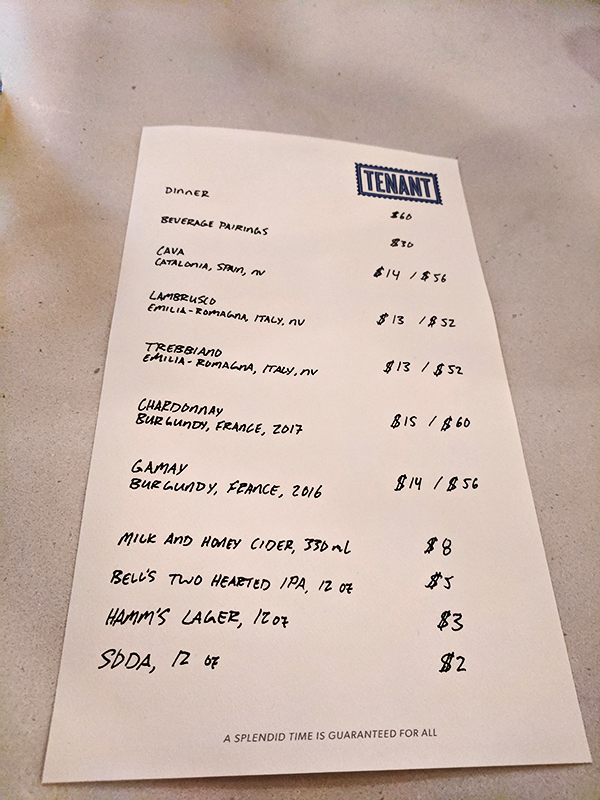 TENANT
DINNER $60
BEVERAGE PAIRINGS $30
CAVA
CATALONIA, SPAIN, NV $14 / $56
LAMBRUSCO
EMILIA-ROMAGNA, ITALY, NV $13 / $52
TREBBIANO
EMILIA-ROMAGNA, ITALY, NV $13 / $52
CHARDONNAY
BURGUNDY, FRANCE, 2017 $15 / $60
GAMAY
BURGUNDY, FRANCE, 2016 $14 / $56
MILK AND HONEY CIDER, 330 mL $8
BELL'S TWO HEARTED IPA, 12 oz $5
HAMM'S LAGER, 12 oz $3
SODA, 12 oz $2
A SPLENDID TIME IS GUARANTEED FOR ALL